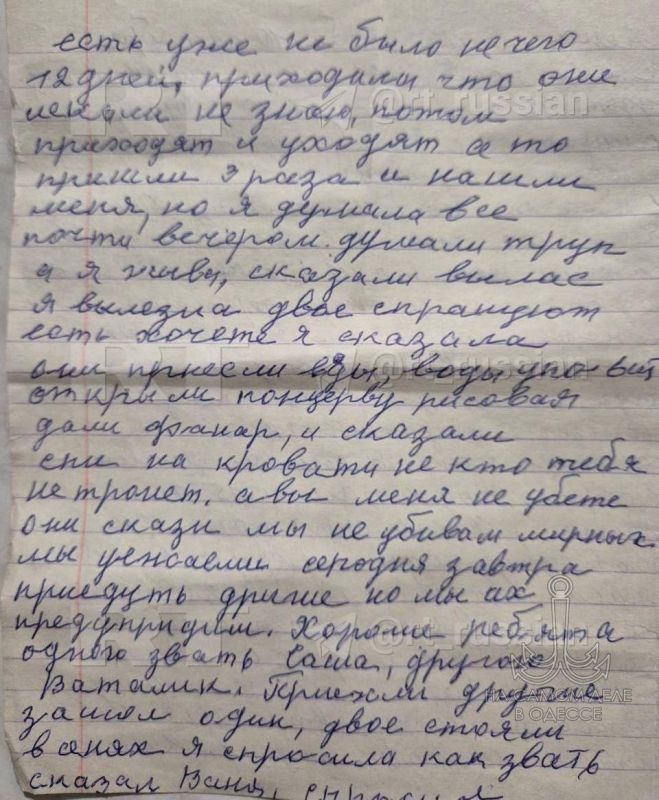 есть уже не было не чего
12 дней, приходили что они
искали не знаю, потом
приходят и уходят а то
пришли 3 раза и нашли
меня, но я думала все
почти вечером. думали труп
а я жива, сказали вылас
я вылезла двое спрашуют
есть хочете я сказала
они принесли еды, воды
открыли концерву рисовая
дали фанар, и сказали
спи на кровати не кто тебя
не тронет. а вы меня не убете
они скази мы не убивам мирных.
мы уезжаем сегодня завтра
приедуть другие но мы их
предупридим. Хороши ребята
одного звать Саша, другова
Ваталик. Приехали другие
зашол один, двое стояли
в сенях я спросила как звать
сказал Ваня,
@rt_russian
@rt_russian
@rt_russian
RT
НА САМОМ ДЕЛЕ
В ОДЕССЕ